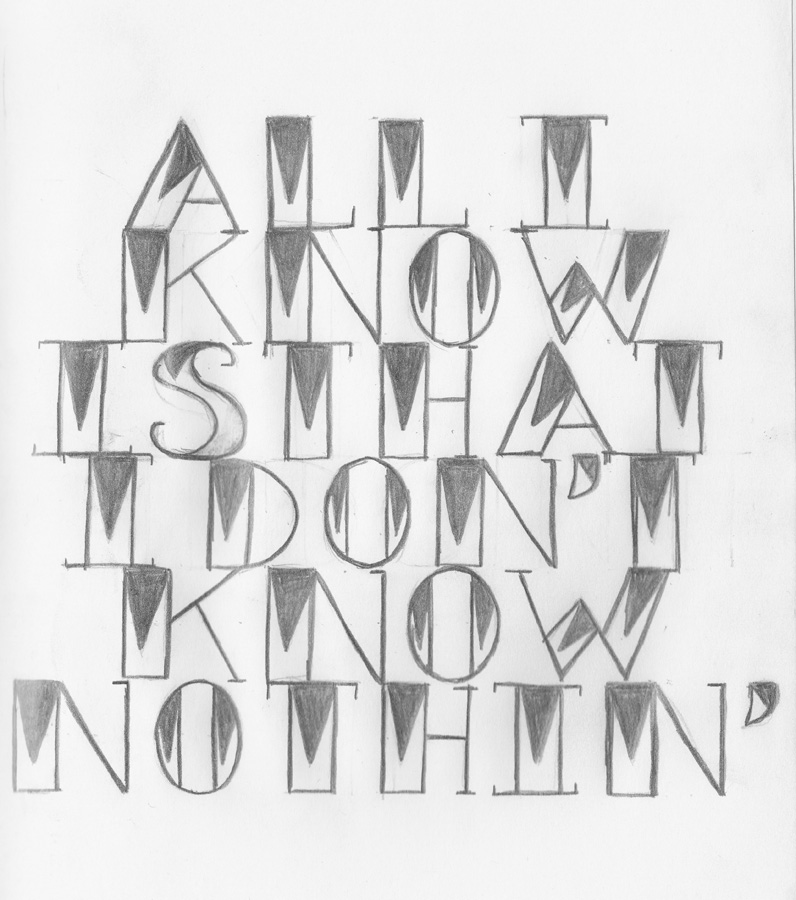 ALL I
KNOW
IS THAT
I DON'T
KNOW
NOTHIN'